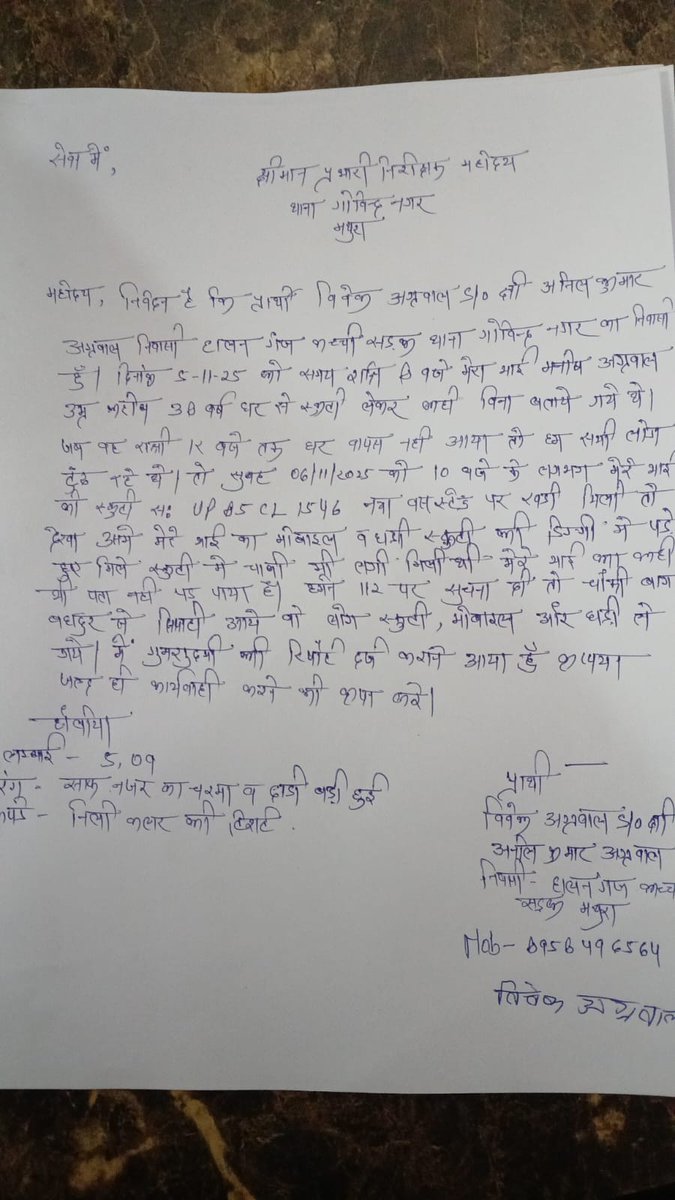 सेवा में,
श्रीमान प्रभारी निरीक्षक महोदय
थाना गोविन्द नगर
मथुरा
महोदय, निवेदन है कि प्रार्थी विवेक अग्रवाल S/o श्री अनिल कुमार
अग्रवाल निवासी गंज कच्ची सड़क थाना गोविन्द नगर का निवासी
हूँ। दिनांक 5-11-25 को समय रात्रि 8 बजे मेरा भाई मनीष अग्रवाल
उम्र करीब 38 वर्ष घर से स्कूटी लेकर कही बिना बताये गये थे।
जब वह रात्री 12 बजे तक घर वापस नही आया तो हम सभी लोग
ढूंढ रहे थे। तो सुबह 06/11/2025 को 10 बजे के लगभग मेरे भाई
की स्कूटी स: UP 85 CL 1546 नया बस स्टेंड पर खडी मिली तो
देखा उसमे मेरे भाई का मोबाइल व घडी स्कूटी की डिग्गी मे पडे
हुए मिले स्कूटी मे चाबी भी लगी मिली थी मेरे भाई का कही
भी पता नही पड पाया है। हमने 112 पर सूचना दी तो चौकी बाग
बहादुर से सिपाही आये वो लोग स्कूटी, मोबाइल और घडी ले
गये। में गुमशुदगी की रिपोर्ट दर्ज कराने आया हूँ कृपया
जल्द ही कार्यवाही करने की कृपा करे।
हुलिया
लम्बाई - 5,09
रंग - साफ नजर का चश्मा व दाडी बडी हुई
कपडे - निली कलर की टीशर्ट .
प्रार्थी
विवेक अग्रवाल S/o श्री
अनील कुमार अग्रवाल
निवासी - गंज कच्ची
सड़क मथुरा
Mob - 8958496564
विवेक अग्रवाल